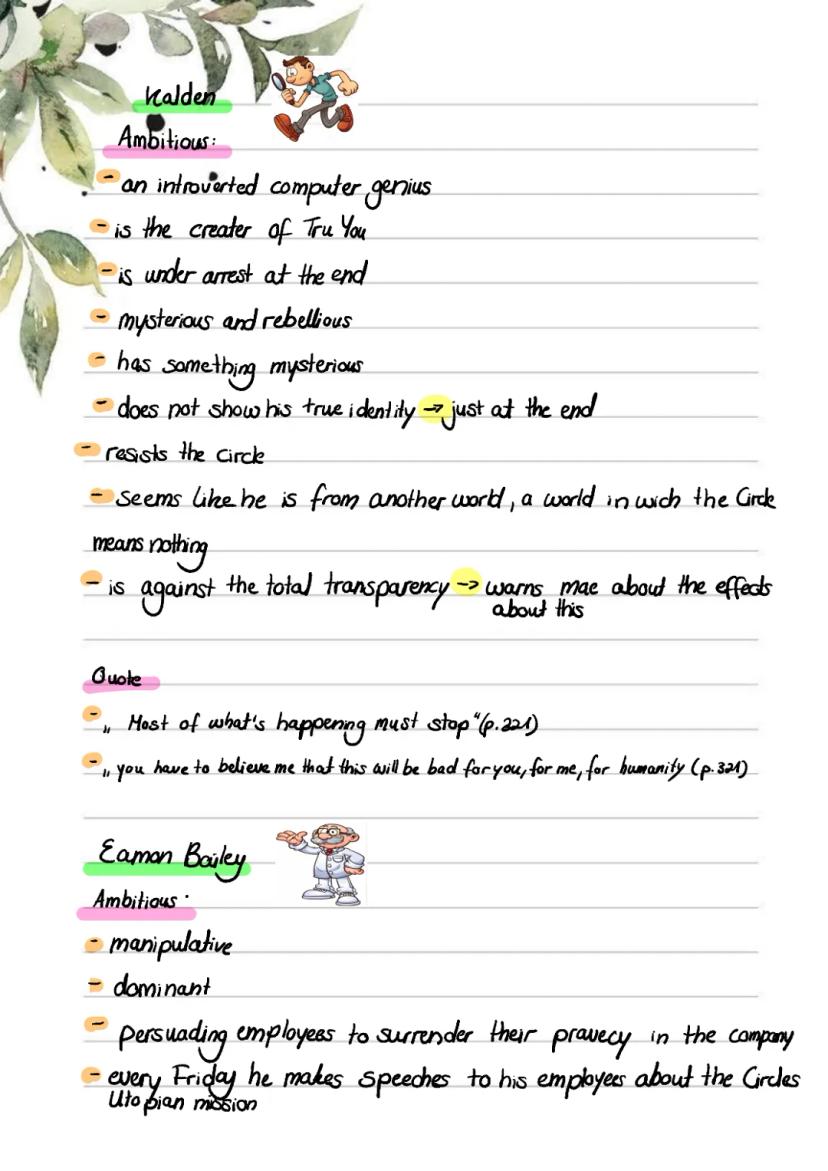 Kalden
Ambitious:
- an introverted computer genius
- is the creater of Tru You
- is under arrest at the end
- mysterious and rebellious
- has something mysterious
- does not show his true identity → just at the end
- resists the Circle
- seems like he is from another world, a world in wich the Circle
means nothing
- is against the total transparency → warns mae about the effects
about this
Quote
- „ Most of what's happening must stop“ (p.221)
- „ you have to believe me that this will be bad for you, for me, for humanity (p.321)
Eamon Bailey
Ambitious:
- manipulative
- dominant
- persuading employees to surrender their pravecy in the company
- every Friday he makes speeches to his employees about the Circles
Utopian mission